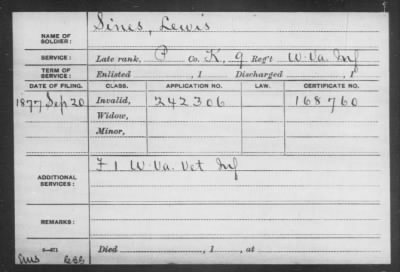 NAME OF SOLDIER: Sines, Lewis
SERVICE: Late rank, P Co. K, 9 Reg't W. Va. Inf
TERM OF SERVICE: Enlisted , 1 Discharged , 1
DATE OF FILING. CLASS. APPLICATION NO. LAW. CERTIFICATE NO.
1877 Sep 20 Invalid, 242306 168760
Widow,
Minor,
ADDITIONAL SERVICES: F 1 W. Va. Vet Inf
REMARKS:
Died , 1 , at